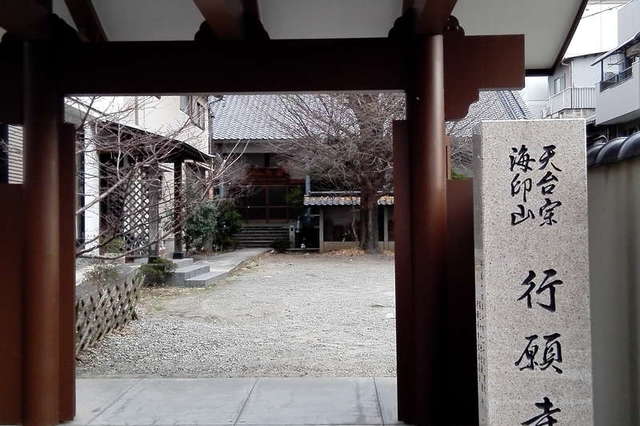 天台宗
海印山
行願寺